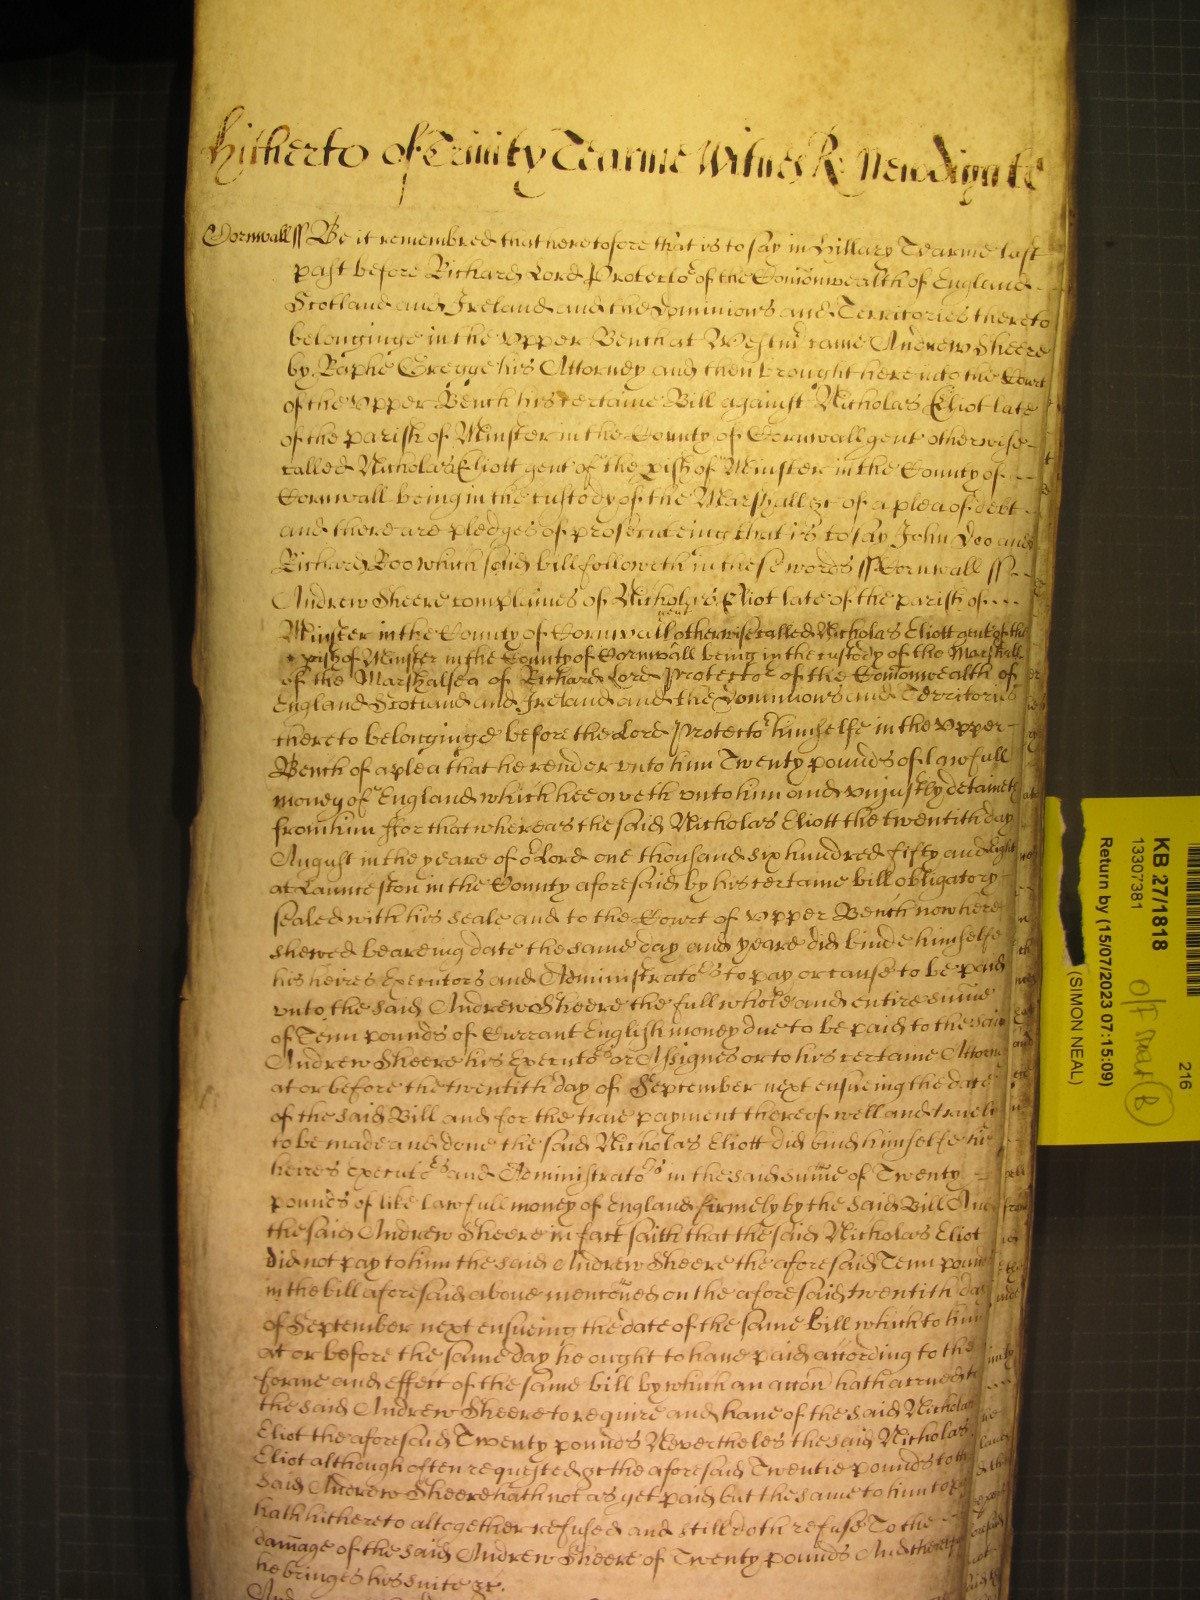 Hitherto of Trinity Tearme Witnes R: Newdigate
Cornwall ss Be it remembred that heretofore that is to say in Hillary Tearme last
past before Richard Lord Protector of the Comonwealth of England
Scotland and Ireland and the Dominions and Territories thereto
belonginge in the Upper Bench at Westmr came Andrew Sheere
by Raphe Gregge his Attorney and then brought here into the Court
of the Upper Bench his certaine Bill against Nicholas Eliot late
of the parish of Minster in the County of Cornwall gent otherwise
called Nicholas Eliott gent of the pish of Minster in the County of
Cornwall being in the custody of the Marshall &c of a plea of debt
and there are pledges of prosecuteing that is to say John Doo and
Richard Roo which said bill followeth in these words ss Cornwall ss
Andrew Sheere complaines of Nicholas Eliot late of the parish of
gent
Minster in the County of Cornwall otherwise called Nicholas Eliott gent of the
pish of Minster in the County of Cornwall being in the custody of the Marshall
of the Marshalsea of Richard Lord Protector of the Comonwealth of
England Scotland and Ireland and the Dominions and Territories
thereto belonginge before the Lord Protector himselfe in the Upper
Bench of a plea that he render unto him Twenty pounds of lawfull
money of England which hee oweth unto him and uniustly detaineth
from him ffor that whereas the said Nicholas Eliott the twentith day
August in the yeare of or Lord one thousand six hundred fifty and eight
at Launceston in the County aforesaid by his certaine bill obligatory
sealed with his seale and to the Court of Upper Bench now here
shewed beareing date the same day and yeare did binde himselfe
his heires Executors and Administrators to pay or cause to be paid
unto the said Andrew Sheere the full whole and entire sume
of Tenn pounds of Currant English money due to be paid to the said
Andrew Sheere his Executors or Assignes or to his certaine Attorn
at or before the twentith day of September next ensueing the date
of the said Bill and for the true payment thereof well and truely
to be made and done the said Nicholas Eliott did bind himselfe his
heires executors and Administrators in the said sume of Twenty
pounds of like lawfull money of England firmely by the said Bill And
the said Andrew Sheere in fact saith that the said Nicholas Eliot
did not pay to him the said Andrew Sheere the aforesaid Tenn pounds
in the bill aforesaid above mentoned on the aforesaid twentith day
of September next ensueing the date of the same Bill which to him
at or before the same day he ought to have paid according to the
forme and effect of the same bill by which an accon hath accrued to
the said Andrew Sheere to require and have of the said Nicholas
Eliot the aforesaid Twenty pounds Nevertheles the said Nicholas
Eliot although often requested &c the aforesaid Twentie pounds to the
said Andrew Sheere hath not as yet paid but the same to him to pay
hath hithereto altogether refused and still doth refuse To the
damage of the said Andrew Sheere of Twenty pounds And thereof
he bringes his suite &c.
KB 27/1818
13307381
Return by (15/07/2023 07:15:09)
(SIMON NEAL)
216
off mar B